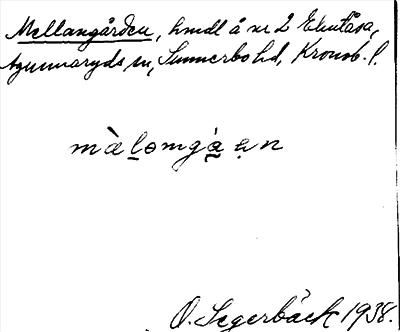 Mellangården, hmdl å nr 2 Eknåsa,
Agunnaryds sn, Sunnerbo hd, Kronob. l.
màlomgɑ́ən
O. Segerbäck 1938.